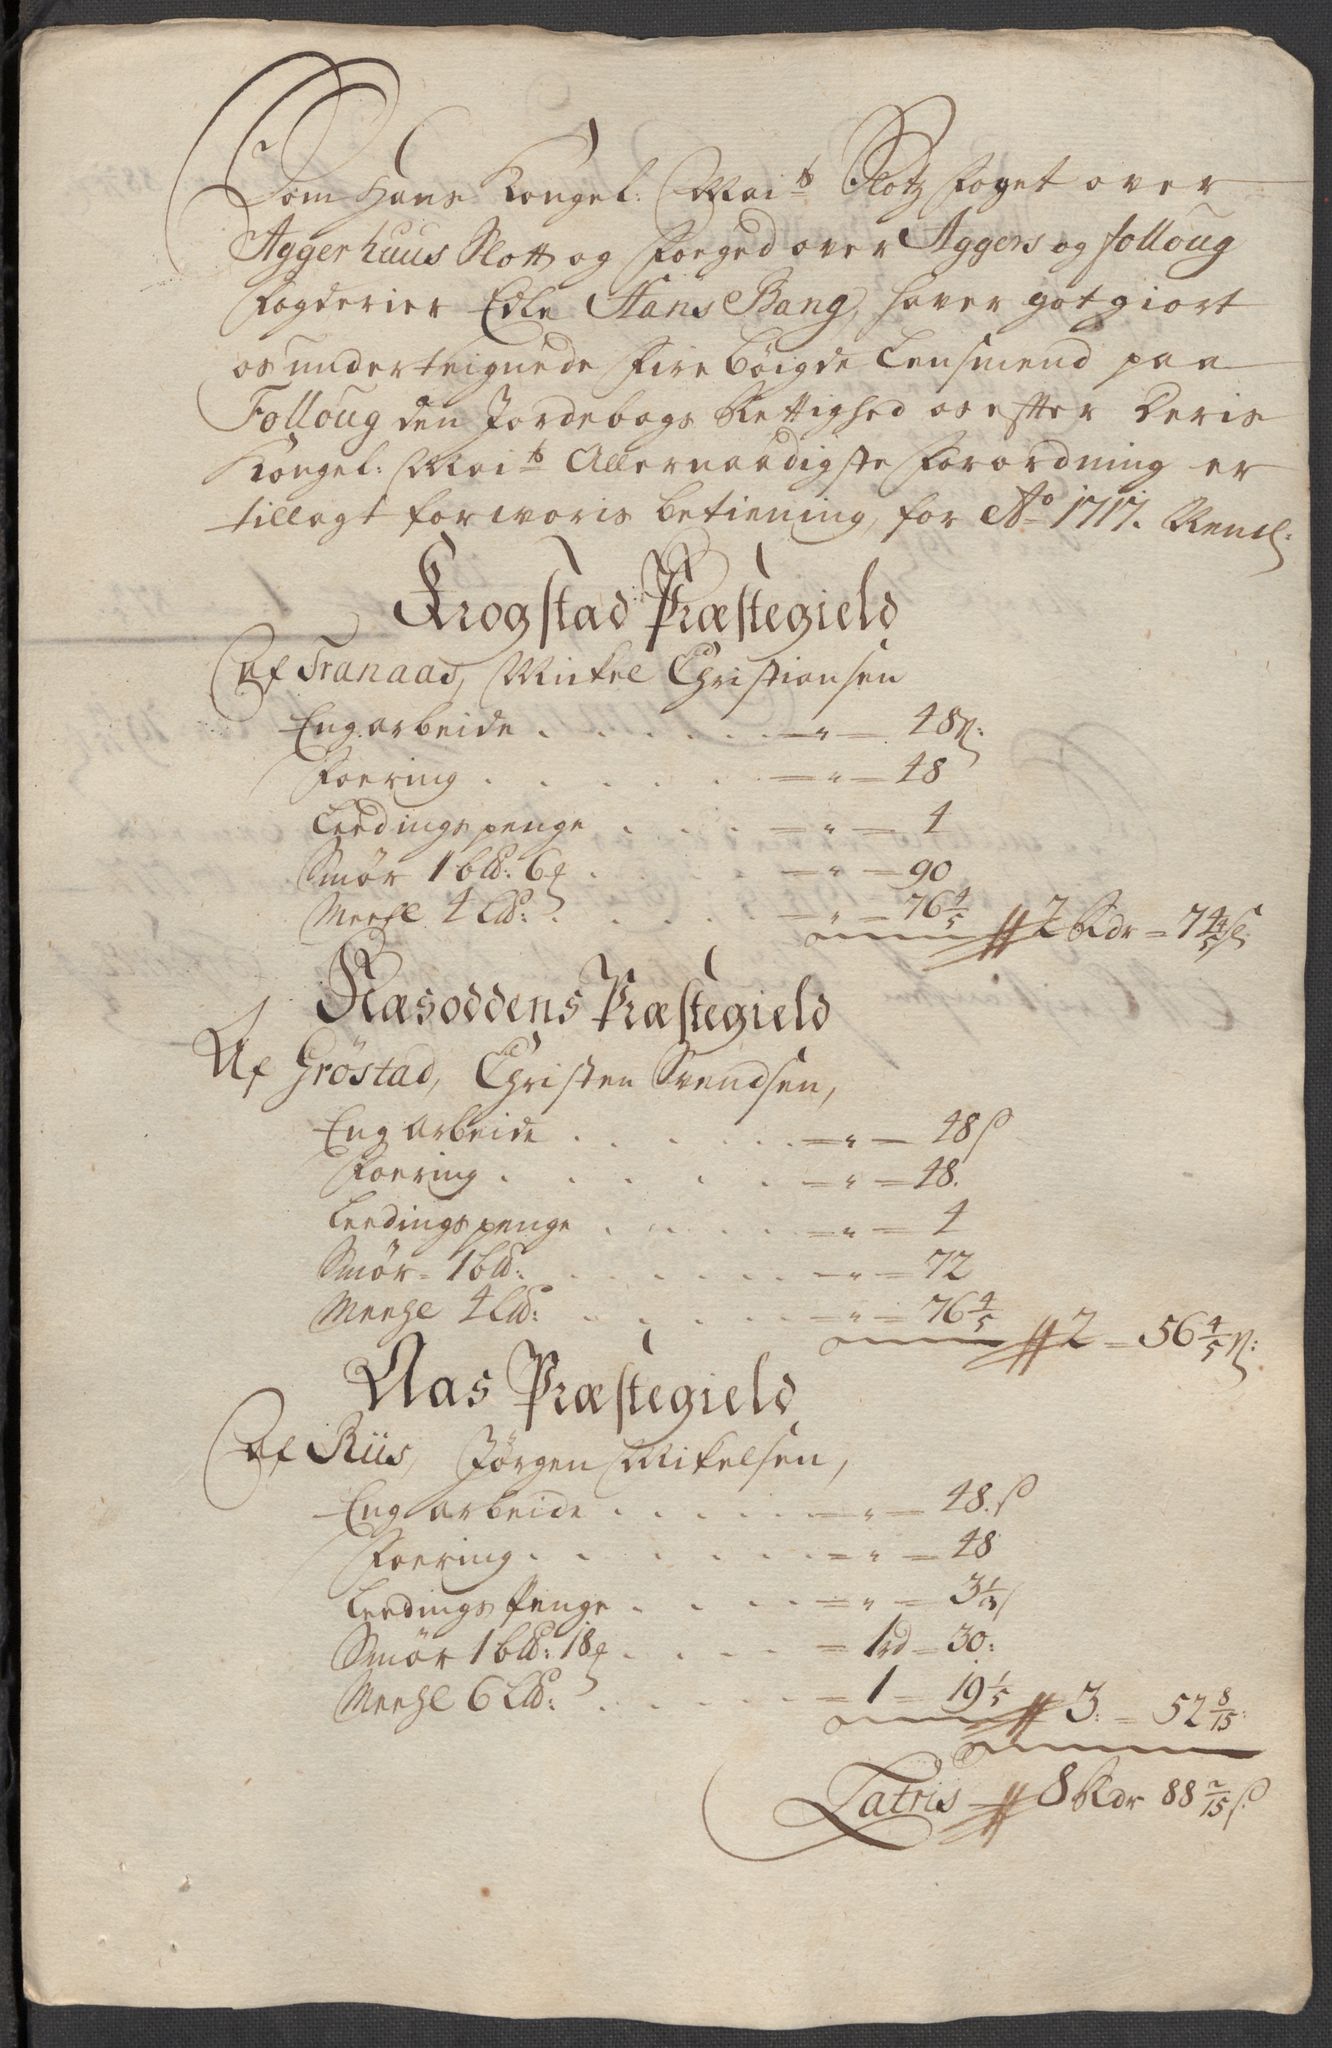 Som Hans Kongel: Mai:ts Slotz foget over
Aggerhuus Slott og Foeged over Aggers og folloug
fogderier Edle Hans Bang, haver got giort
os underteignede fire böigde Lensmend paa
Folloug den Jordebogs Rettighed os efter deris
Kongel: Mai:ts Allernaadigste forordning er
tillagt for woris betiening, for Ao 1717. Neml:
Krogstad Præstegield
Af Tranaas, Mickel Christiansen
Engarbeide . . . . . . — " — 48 s:
Foering . . . . . — " — 48
Leedings penge . . . — " — 4
Smör 1 bld: 6 . . . . — " — 90
Meehl 4 Ld: . . . . — " — 76 4/5 // 2 Rdr = 74 4/5 s
Næsoddens Præstegield
Af Gröstad, Christen Svendsen,
Eng arbeide . . . . . — " — 48 s
Foering . . . . . — " — 48.
Leedings penge . . . . — " — 4
Smör - 1 bld: . . . . . — " — 72
Meehl 4 Ld: . . . . — " — 76 4/5 // 2 — 56 4/5 s:
Aas Præstegield
Af Riis, Jörgen Mikelsen,
Eng arbeide . . . . . — " — 48. s
Foering . . . . . . — " — 48
Leedings Penge . . . . — " — 3 1/3 s
Smör 1 bld: 18 . . . . — 1 rd — 30:
Meehl 6 Ld: . . . . . — 1 — 19 1/5 // 3: — 52 8/15:
Latris // 8 Rdr 88 2/15 s